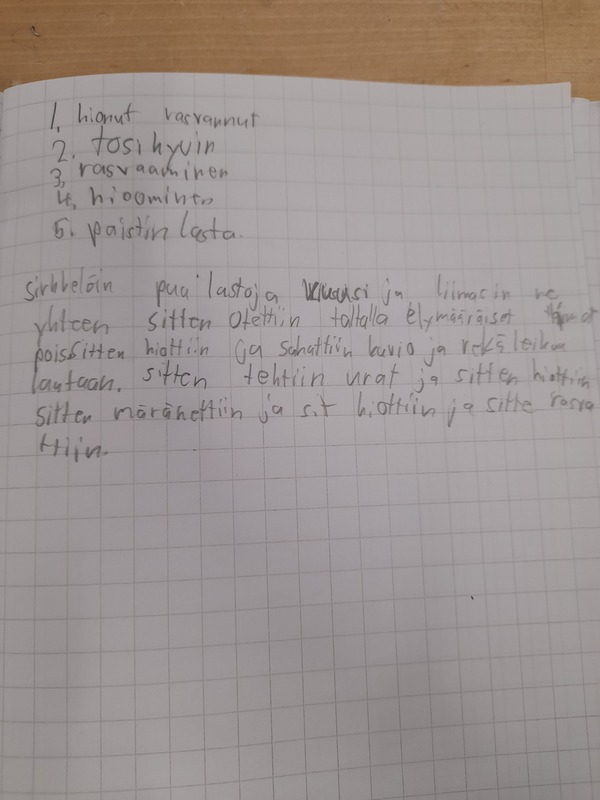 1. hionut rasvannut
2. tosi hyvin
3. rasvaaminen
4. hioominen
5. paistin lasta.
sirkkelöin puu lastoja kuusi ja liimasin ne
yhteen sitten otettiin taltalla élymääräiset
poissitten hiottiin ja sahattiin kuvio ja rekä leikuu
lautaan. sitten tehtiin urat ja sitten hiottiin
sitten märähettiin ja sit hiottiin ja sitte rasva
ttiin.